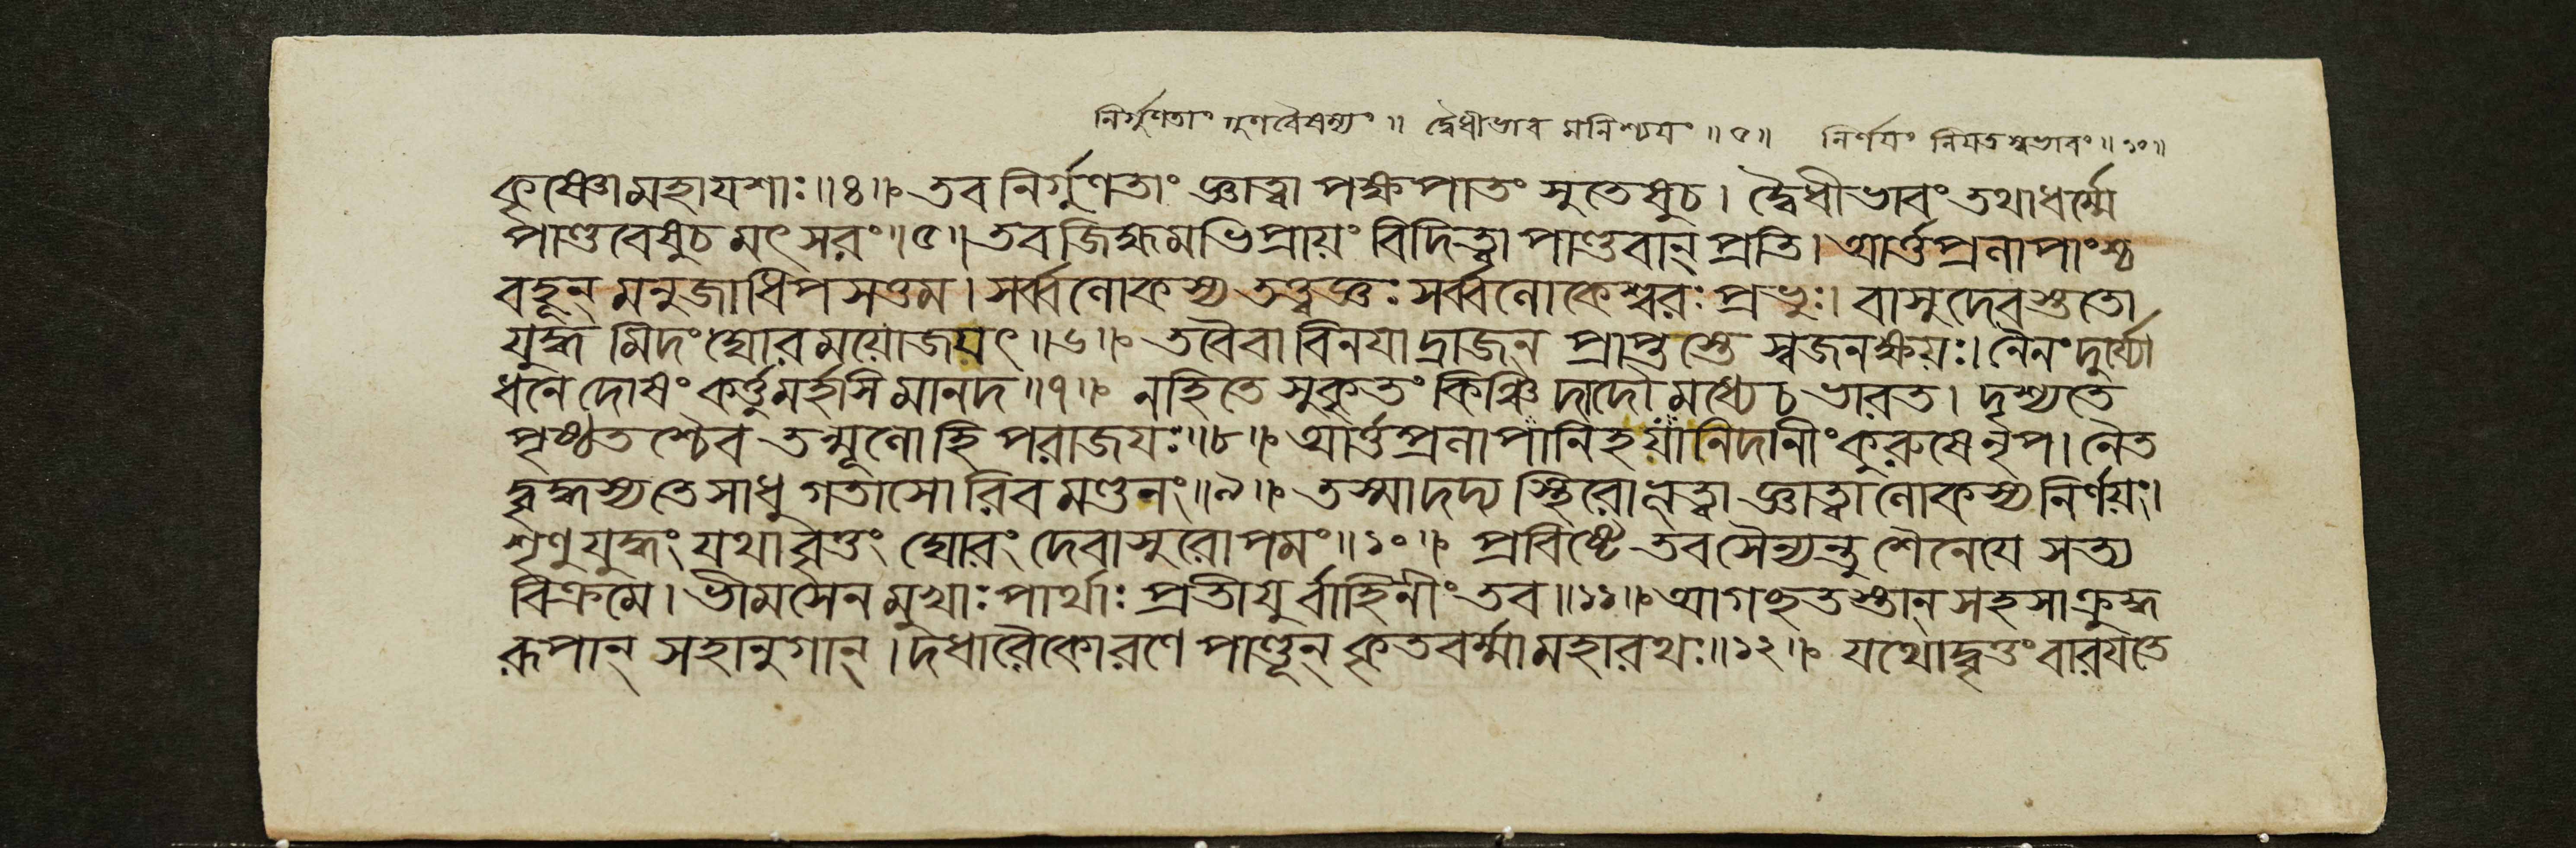 নির্গুণতাং গুণবৈষম্যং॥ দ্বৈধীভাব মনিশ্চয়ং॥৫॥ নির্ণয়ং নিয়তস্বভাবং॥১০॥
কৃষ্ণো মহাযশাঃ॥৪॥ তব নির্গুণতাং জ্ঞাত্বা পক্ষপাতং সুতেষুচ। দ্বৈধীভাবং তথা ধর্ম্মে
পাণ্ডবেষুচ মৎসরং॥৫॥ তব জিহ্মমভিপ্রায়ং বিদিত্বা পাণ্ডবান্ প্রতি। আর্ত্তপ্রলাপাংশ্চ
বহূন্ মনুজাধিপ সত্তম। সর্ব্বলোকস্য তত্ত্বজ্ঞঃ সর্ব্বলোকেশ্বরঃ প্রভুঃ। বাসুদেবস্ততো
যুদ্ধ মিদং ঘোরময়োজয়ৎ॥৬॥ তবৈবাবিনযাদ্রাজন্ প্রাপ্তস্তে স্বজনক্ষয়ঃ। নৈনং দুর্য্যো
ধনে দোষং কর্ত্তুমর্হসি মানদ॥৭॥ নহিতে সুকৃতং কিঞ্চিদাদৌ মধ্যেচ ভারত। দৃশ্যতে
পৃষ্ঠতশ্চৈব তন্মূলোহি পরাজযঃ॥৮॥ আর্ত্তপ্রলাপানিহয়ানিদানীং কুরুষে নৃপ। নৈত
দ্বুদ্ধস্যতে সাধু গতাসোরিব মণ্ডনং॥৯॥ তস্মাদদ্য স্থিরোভূত্বা জ্ঞাত্বা লোকস্য নির্ণয়ং।
শৃণু যুদ্ধং যথাবৃত্তং ঘোরং দেবাসুরোপমং॥১০॥ প্রবিষ্টে তব সৈন্যন্তু শৈনেযে সত্য
বিক্রমে। ভীমসেনমুখাঃ পার্থাঃ প্রতীযুর্বাহিনীং তব॥১১॥ আগচ্ছতস্তান্ সহসা ক্রুদ্ধ
রূপান্ সহানুগান্। দধারৈকোরণে পাণ্ডূন্ কৃতবর্ম্মা মহারথঃ॥১২॥ যথোদ্বৃত্তং বারযতে